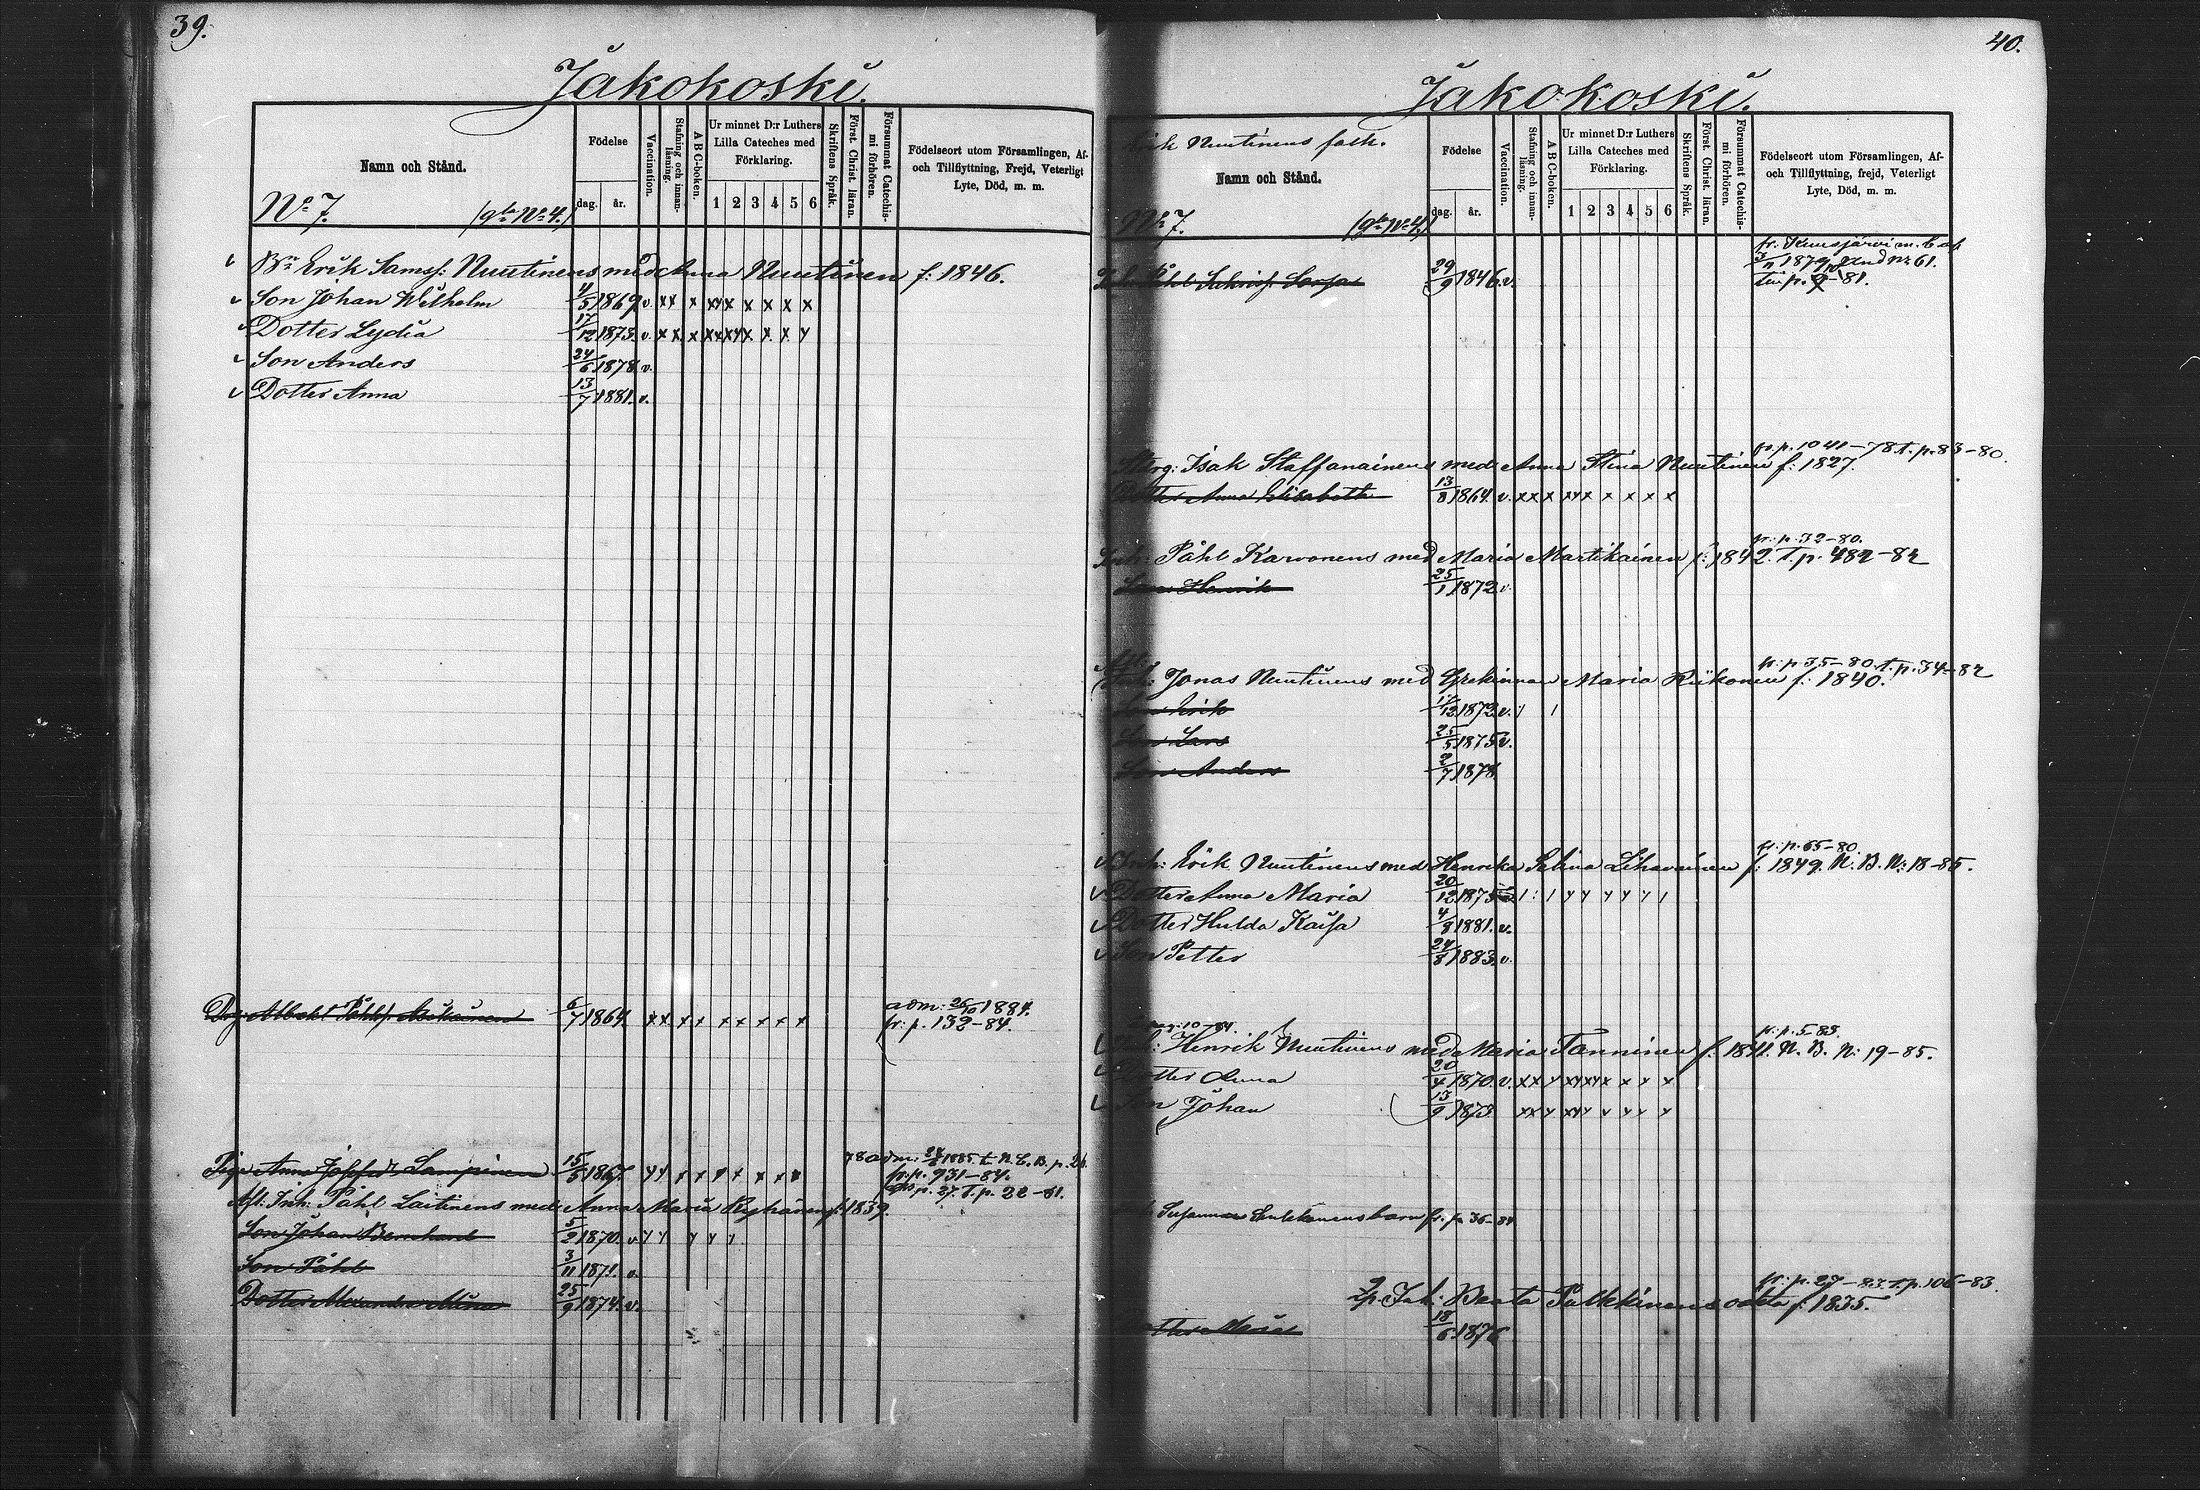 39.
Jakokoski.
Namn och Stånd.
Födelse
dag.
år.
Vaccination.
Stafning och innanläsning.
ABC-boken.
Ur minnet D:r Luthers
Lilla Cateches med
Förklaring.
1 2 3 4 5 6
Skriftens Språk.
Först. Christ. läran.
Försummat Catechismi förhören.
Födelseort utom Församlingen, Af-
och Tillflyttning, Frejd, Veterligt
Lyte, Död, m. m.
No 7.
Bn Erik Samsf: Nuutinens med Anna Nuutinen f: 1846.
Son Johan Wilhelm 4/5 1869 v. xx x xx x x x x x
Dotter Lydia 17/12 1873. v.
Son Anders 24/6 1878. v.
Dotter Anna 13/7 1881. v.
6/7 1864.
adm: 26/10 1884.
fr: p. 132-84.
Pig: Anna Lampinen 15/5 1867.
fr. p. 931-84.
p. 27. T. p. 22-81.
Afl. Inh: Påhl Laitinens med Anna Maria f: 1839.
Son Johan Bernhard 5/2 1870. v
Son Påhl 3/11 1871. v.
Dotter Alexandra Mina 25/9 1874. v.
40.
Jakokoski.
Erik Nuutinens folk.
Namn och Stånd.
Födelse
dag.
år.
Vaccination.
Stafning och innanläsning.
ABC-boken.
Ur minnet D:r Luthers
Lilla Cateches med
Förklaring.
1 2 3 4 5 6
Skriftens Språk.
Först. Christ. läran.
Försummat Catechismi förhören.
Födelseort utom Församlingen, Af-
och Tillflyttning, frejd, Veterligt
Lyte, Död, m. m.
No 7.
29/9 1846. v.
Isak Staffanainens med Anna Stina Nuutinen f: 1827.
fr. p. 1041-78 t. p. 83-80.
Dotter Anna Elisabeth 13/8 1864. v. xx x xx x x x x x
fr: p. 32-80.
Inh: Påhl Karvonens med Maria Martikainen f: 1842. T. p. 482-82
Son Henrik 25/1 1872. v.
fr: p. 35-80. t. p. 34-82
Jonas Nuutinens med Maria Riikonen f: 1840.
Son Erik 1872. v.
Son Lars 25/5 1875. v.
Son Anders 2/7 1878
fr. p. 65-80.
Inh: Erik Nuutinens med Henrika Selina f: 1849. N. B. N: 18-85.
Dotter Anna Maria 20/12 1875
Dotter Hulda Kaisa 4/8 1881. v.
Son Petter 24/8 1883. v.
fr. p. 5-83.
Henrik Nuutinens med Maria Tanninen f: 1841. N. B. N: 19-85.
Dotter Anna 20/4 1870. v.
Son Johan 13/9 1873.
Susanna barn fr. p. 36-84
fr: p. 27-83. t. p. 106-83.
Inh: Beata Pulkkinens f: 1835.
Dotter Maria 18/6 1876